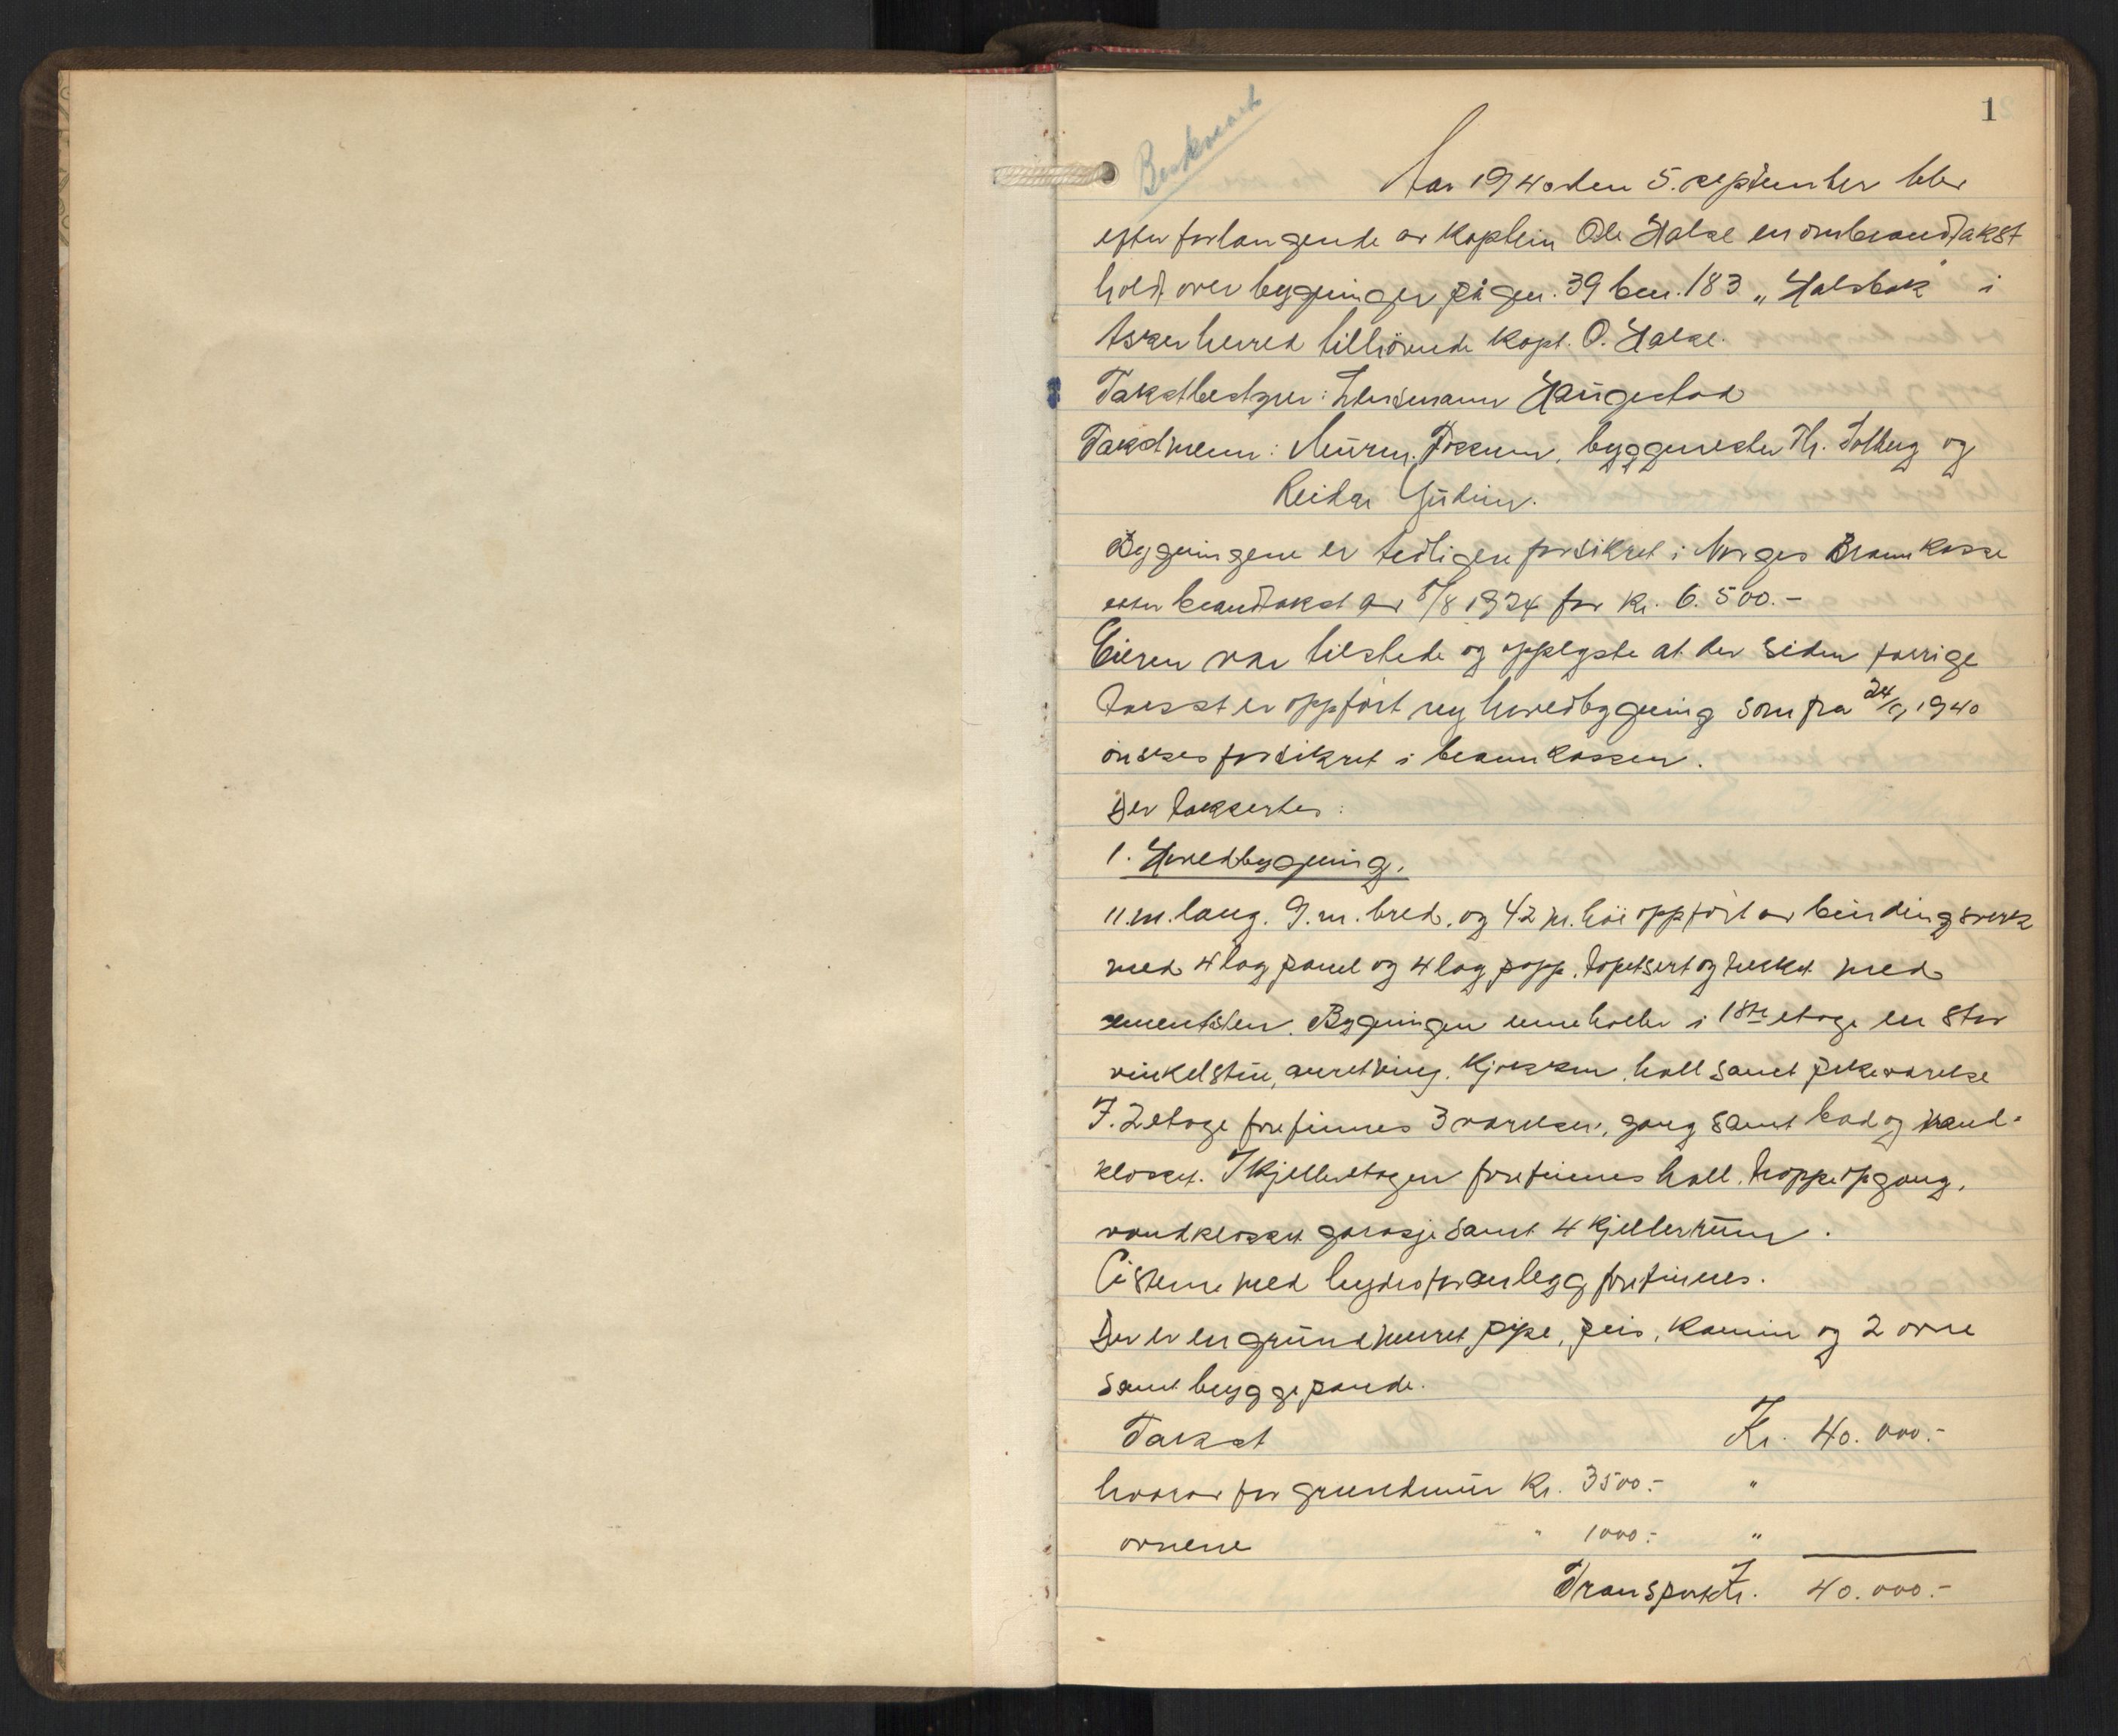 1
Aar 1940 den 5. september blev
efter forlangende av kaptein Ole Halse en ombrandtakst
holdt over bygninger på gnr. 39 bnr. 183 „Halsbak" i
Asker herred tilhörende kapt. O. Halse.
Takstbestyrer: Lensmann Haugestad
Takstmenn: Murm. Fossum, byggmester Th. Solberg og
Reidar Gudim.
Bygningene er tidligere forsikret i Norges Brannkasse
efter brandtakst av 8/8 1924 for kr. 6.500.-
Eieren var tilstede og opplyste at der siden forrige
takst er oppført ny hovedbygning som fra 24/9 1940
önskes forsikret i brannkassen.
Der taksertes:
1. Hovedbygning.
11.m. lang. 9.m. bred. og 4,2 m. höi oppført av bindingsverk
med 4 lag panel og 4 lag papp, tapetsert og tekket med
sementsten. Bygningen inneholder i 1ste etage en stor
vinkelstue, anretning, kjøkken, hall samt pikeværelse
I. 2 etage forefinnes 3 værelser, gang samt bad og vand-
kloset. I kjelleretagen forefinnes hall, trappeopgang,
vandkloset garasje samt 4 kjellerrum.
Cisterne med hydroforanlegg forefinnes.
Der er en grundmuret pipe, peis, kamin og 2 ovne
samt bryggepande.
Takst Kr. 40.000.-
hvorav for grundmur Kr. 3500.- "
ovnene " 1000.- "
Transport Kr. 40.000.-